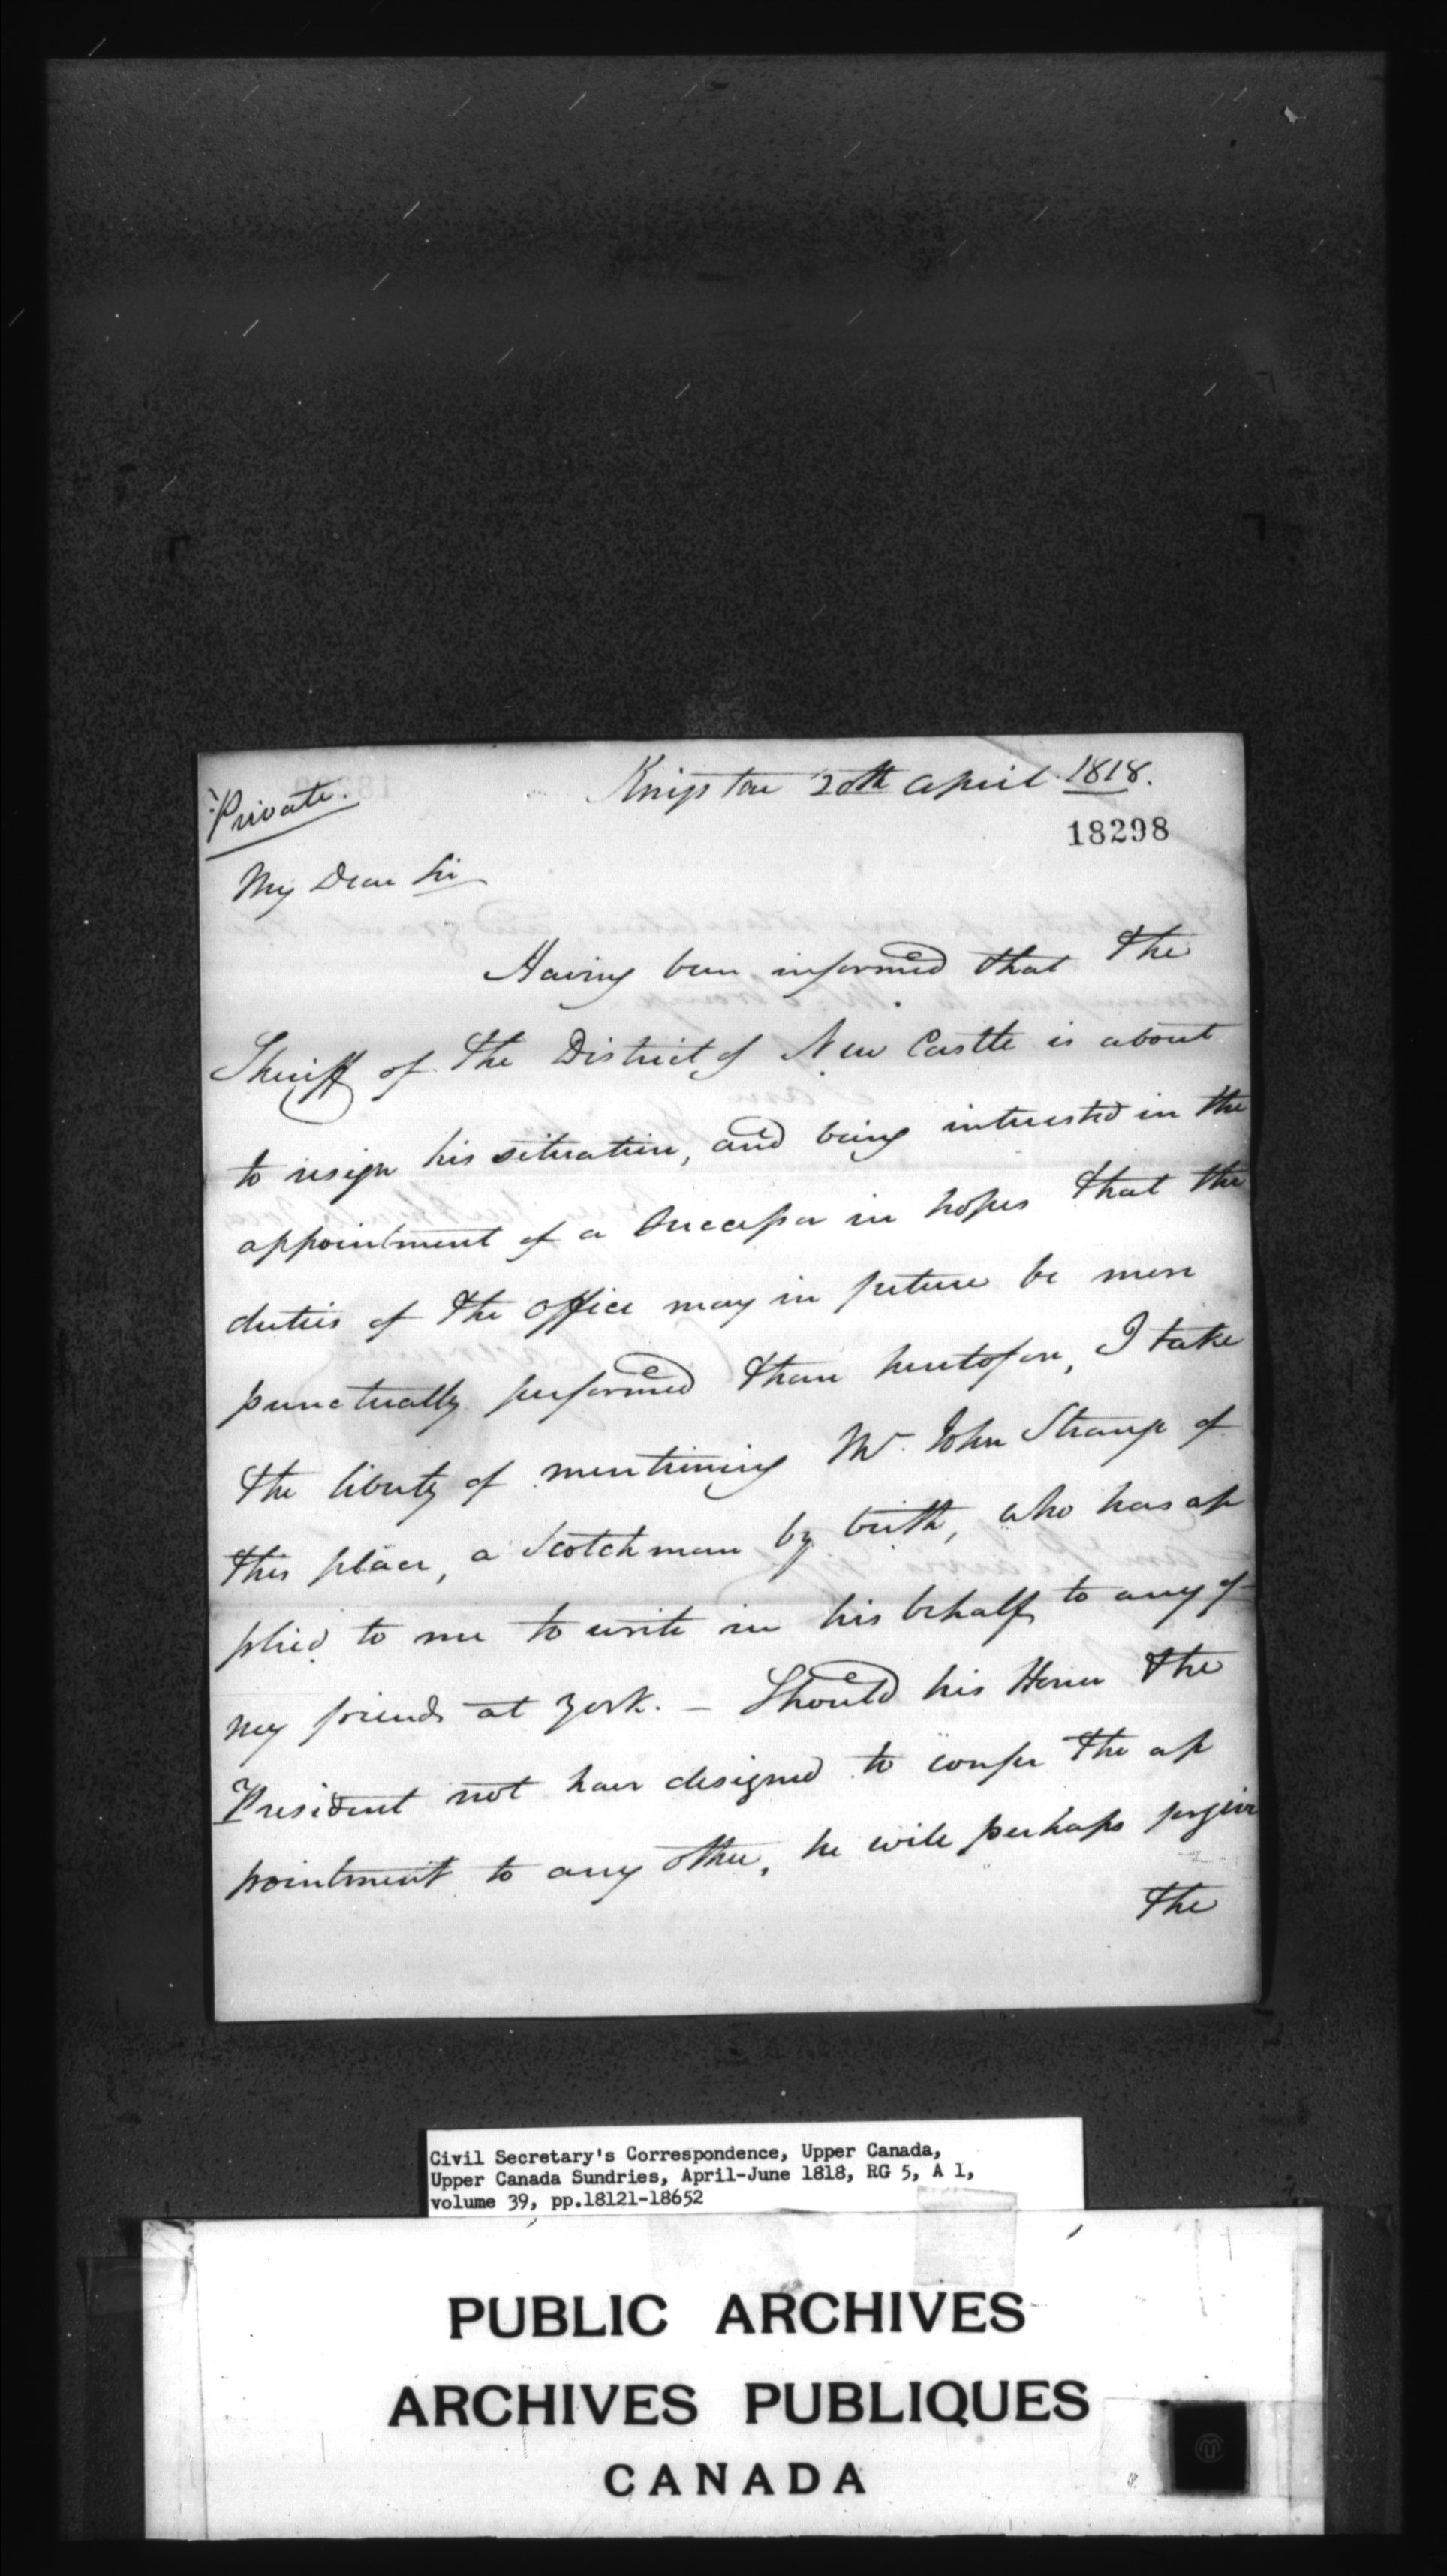 Private.
Kingston 20th April 1818.
18298
My Dear Sir
Having been informed that the
Sheriff of the District of New Castle is about
to resign his situation, and being interested in the
appointment of a Successor in hopes that the
duties of the office may in future be more
punctually performed than heretofore, I take
the liberty of mentioning Mr. John Strange of
this place, a Scotchman by birth, who has ap
plied to me to write in his behalf to any of
my friends at York. - Should his Honor the
President not have designed to confer the ap
pointment to any other, he will perhaps forgive
the
Civil Secretary's Correspondence, Upper Canada,
Upper Canada Sundries, April-June 1818, RG 5, A 1,
volume 39, pp.18121-18652
PUBLIC ARCHIVES
ARCHIVES PUBLIQUES
CANADA